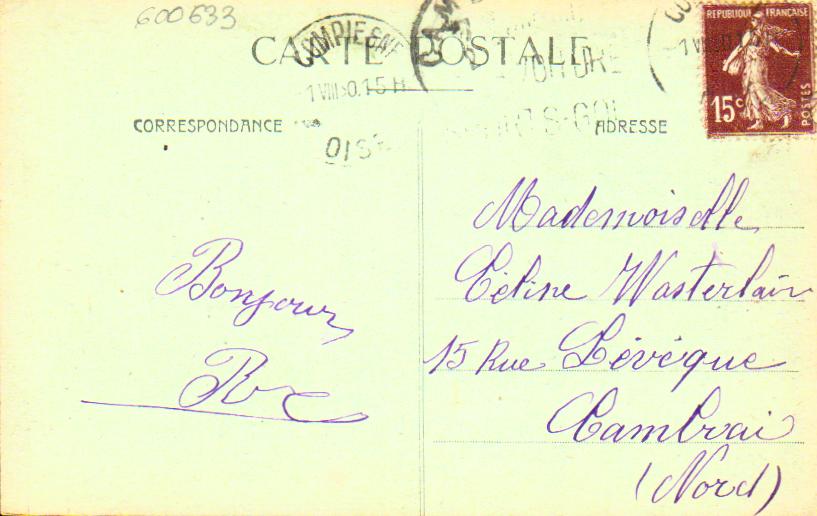 600633
CARTE POSTALE
COMPIEGNE
OISE
REPUBLIQUE FRANÇAISE
15c
POSTES
CORRESPONDANCE
ADRESSE
Bonjour
Mademoiselle
Céline Wasterlain
15 Rue Lévêque
Cambrai
(Nord)